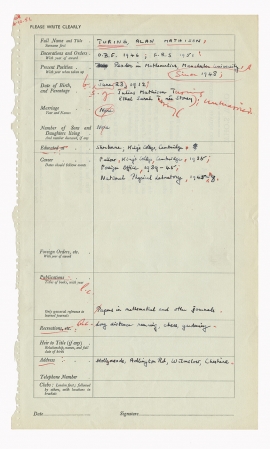 PLEASE WRITE CLEARLY
Full Name and Title TURING, ALAN MATHISON;
Surname first
Decorations and Orders— O.B.E. 1946; F.R.S. 1951;
With year of award
Present Position— Reader in Mathematics, Manchester University,
With year when taken up Since 1948;
Date of Birth, b. June 23, 1912;
and Parentage s. of Julius Mathison Turing
Ethel Sara Turing (née Stoney)
Marriage Nope unmarried
Year and Name
Number of Sons and Nope
Daughters living
Educated at Sherborne, King's College, Cambridge.
Career Fellow, King's College, Cambridge, 1935;
Foreign Office, 1939-45;
National Physical Laboratory, 1945-48.
Foreign Orders, etc.
With year of award
Publications
Titles of books, with year
Papers in mathematical and other journals.
Recreations, etc. long distance running, chess, gardening.
Heir to Title (if any)
Relationship, name, and full date of birth
Address Hollymeade, Adlington Rd, Wilmslow, Cheshire.
Telephone Number
Date Signature